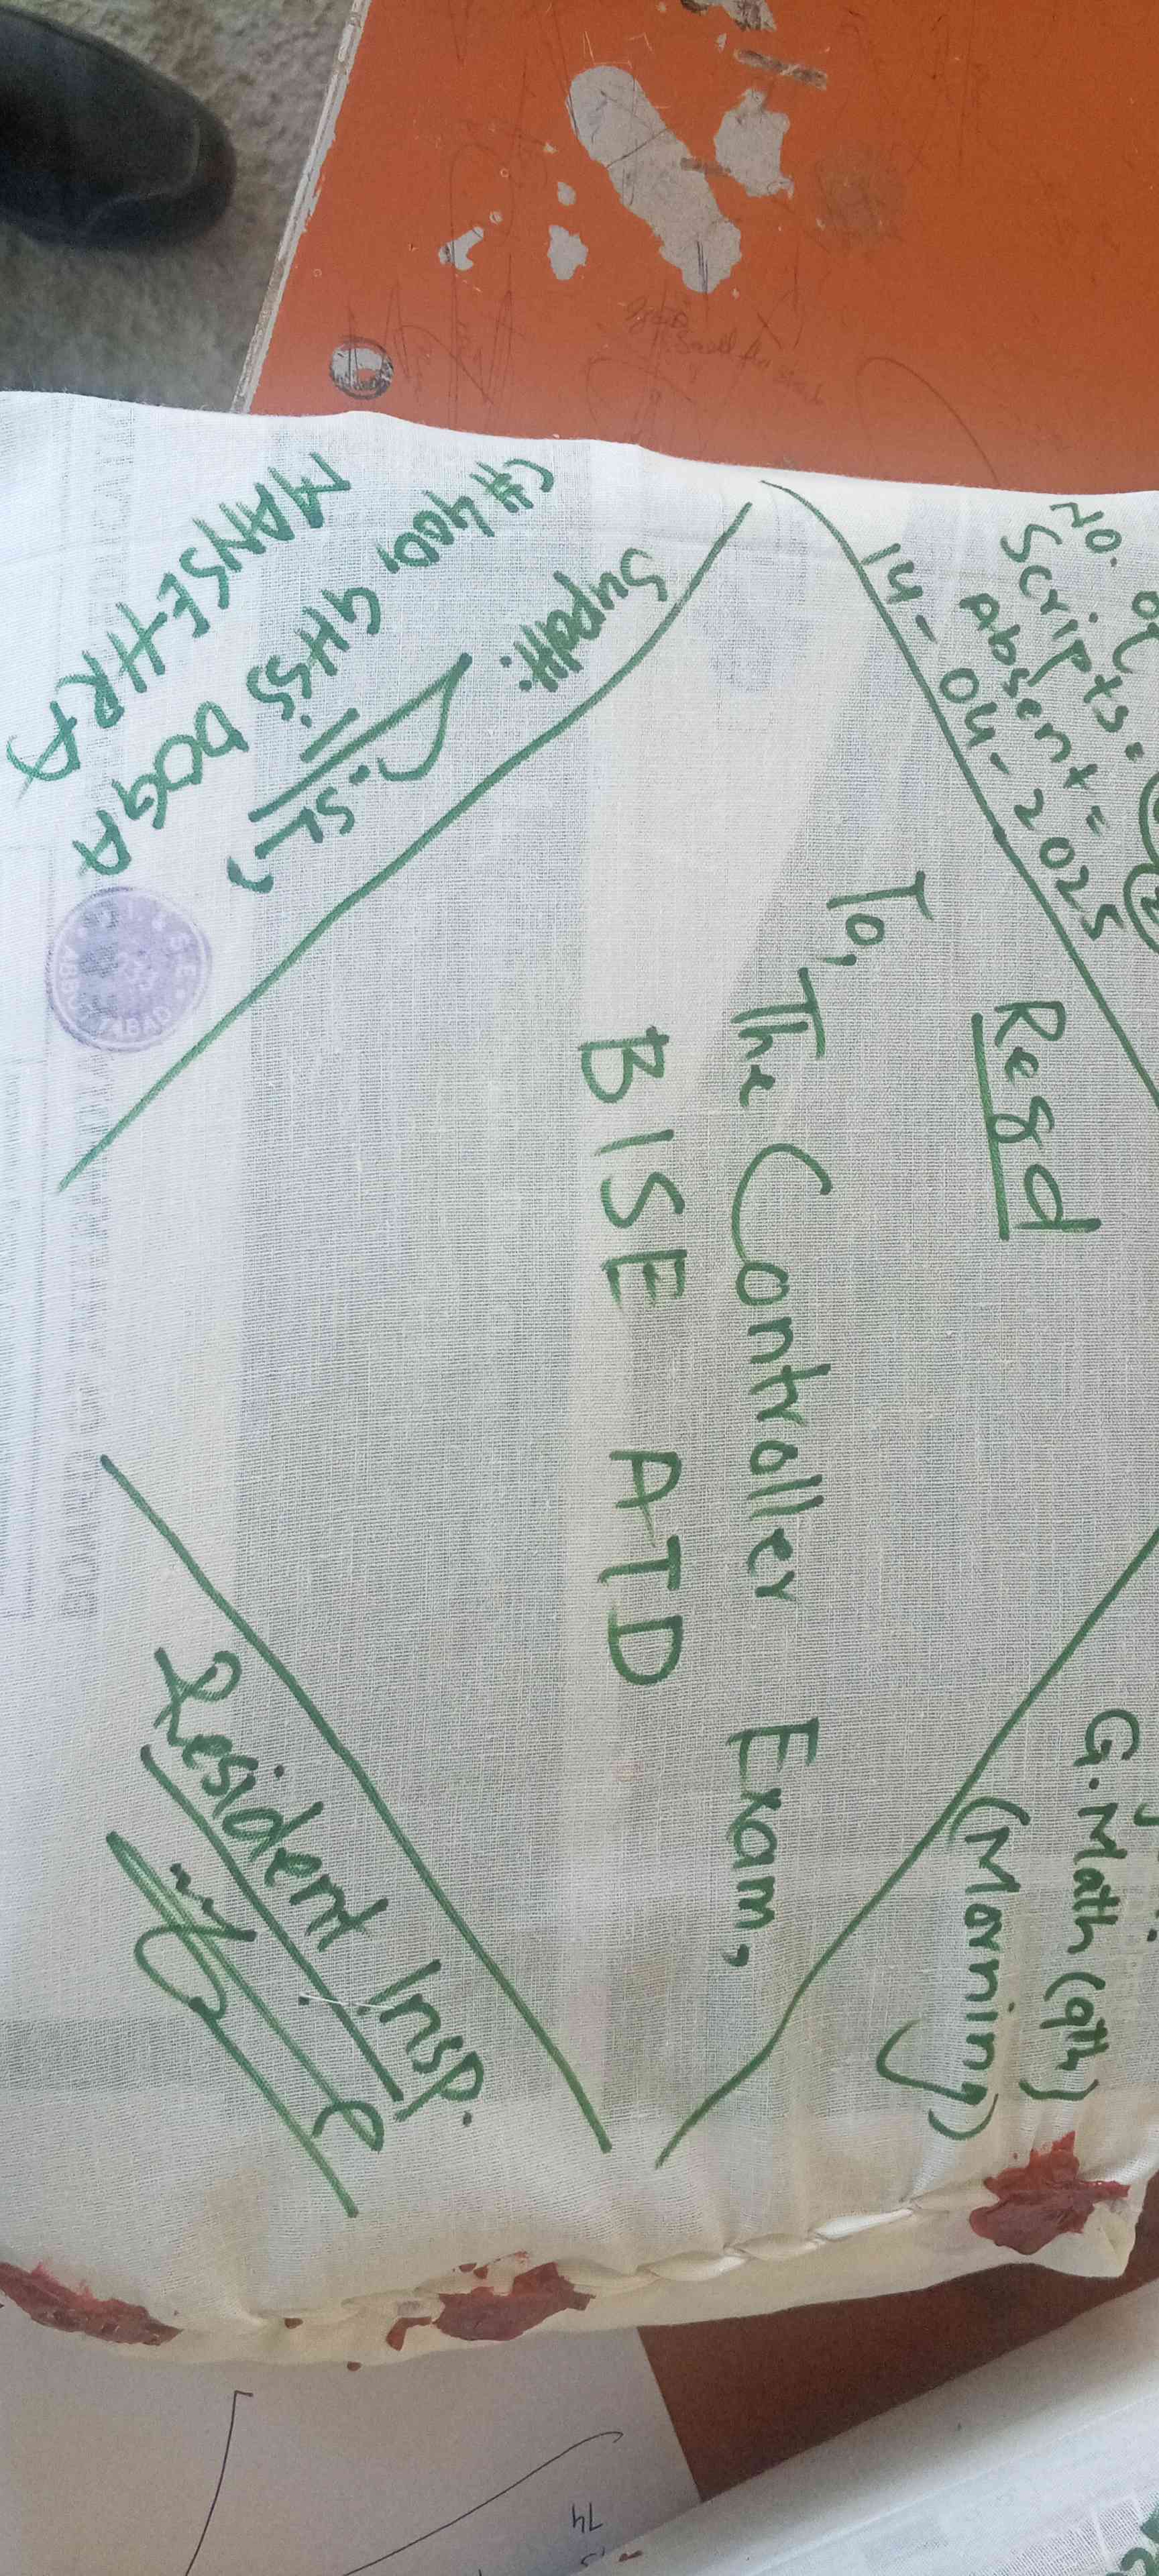 No. of
Scripts.
Absent =
14-04-2025
G. Math (9th)
(Morning)
Regd
To,
The Controller Exam,
BISE ATD
Supdtt:
(SL)
C# 400, GHSS DOGA
MANSEHRA
Resident Insp.
74